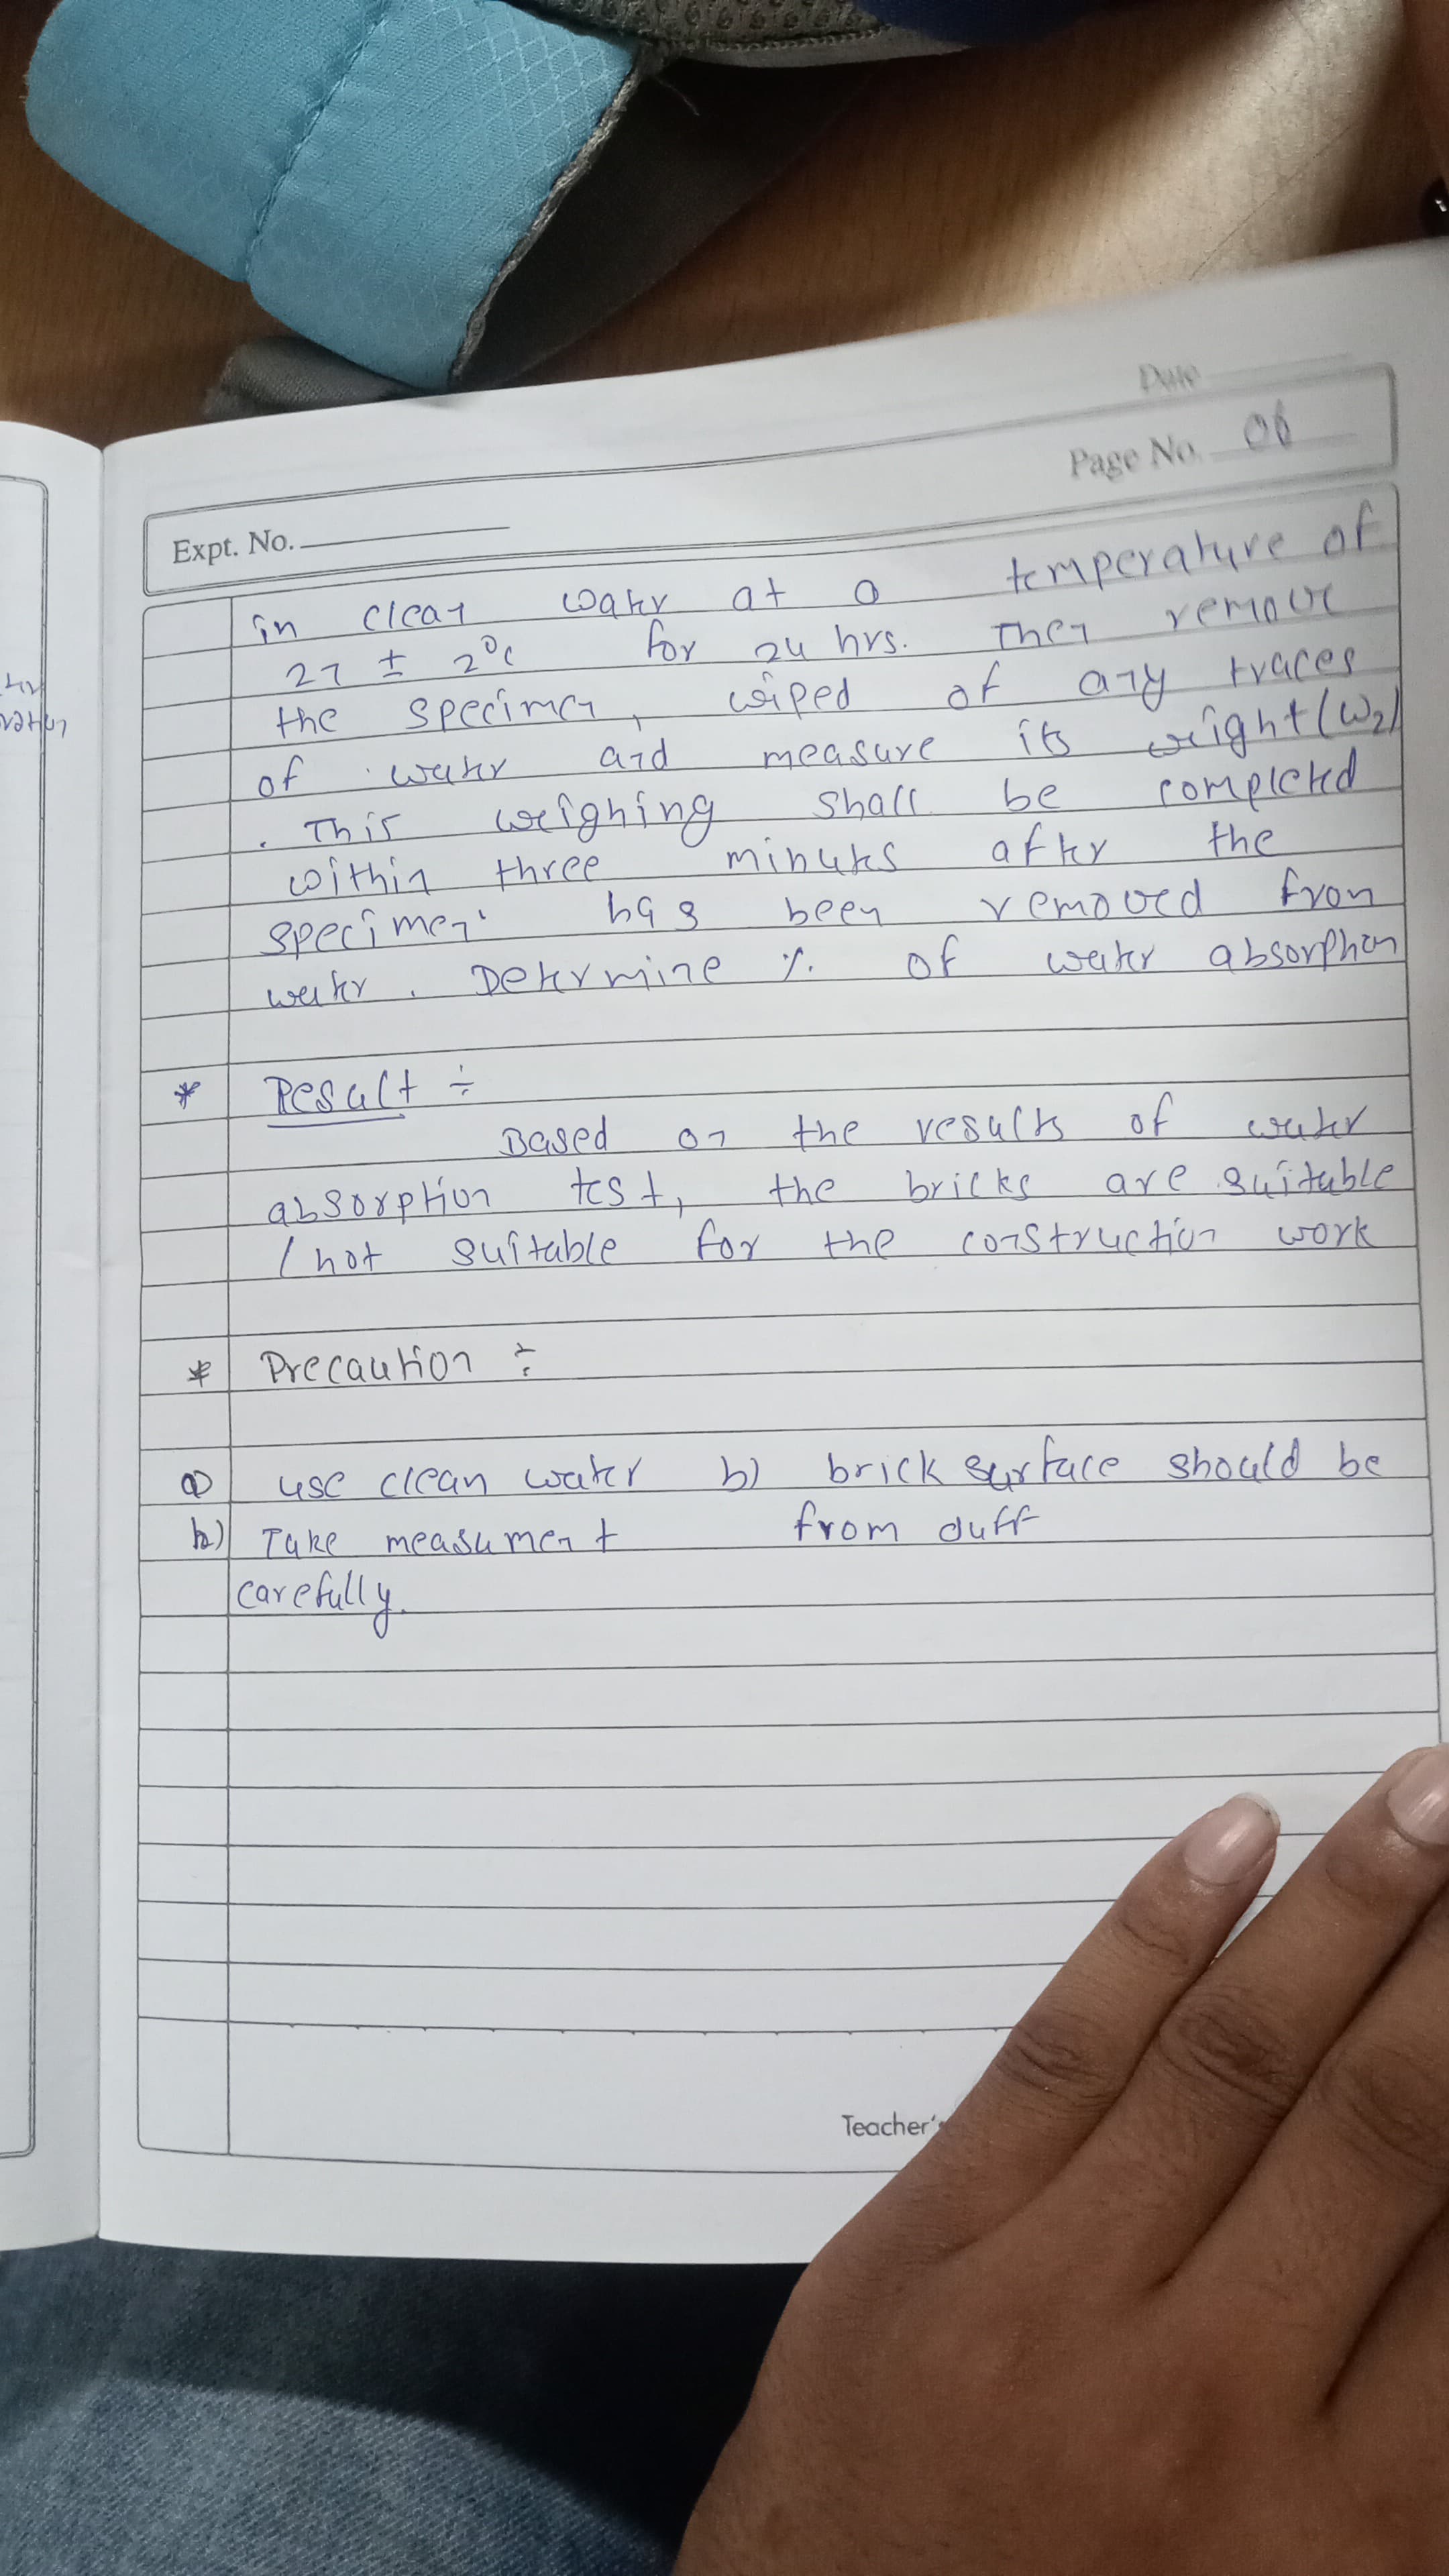 Date
Page No. 06
Expt. No.
in clean water at a temperature of
27 ± 2°c for 24 hrs. Then remove
the specimen, wiped of any traces
of water and measure its weight (W2)
. This weighing shall be completed
within three minutes after the
specimen has been removed from
water. Determine % of water absorption
* Result ÷
Based on the results of water
absorption test, the bricks are suitable
/ not suitable for the construction work
* Precaution ÷
a) use clean water b) brick surface should be
b) Take measument from duff
carefully.
Teacher's